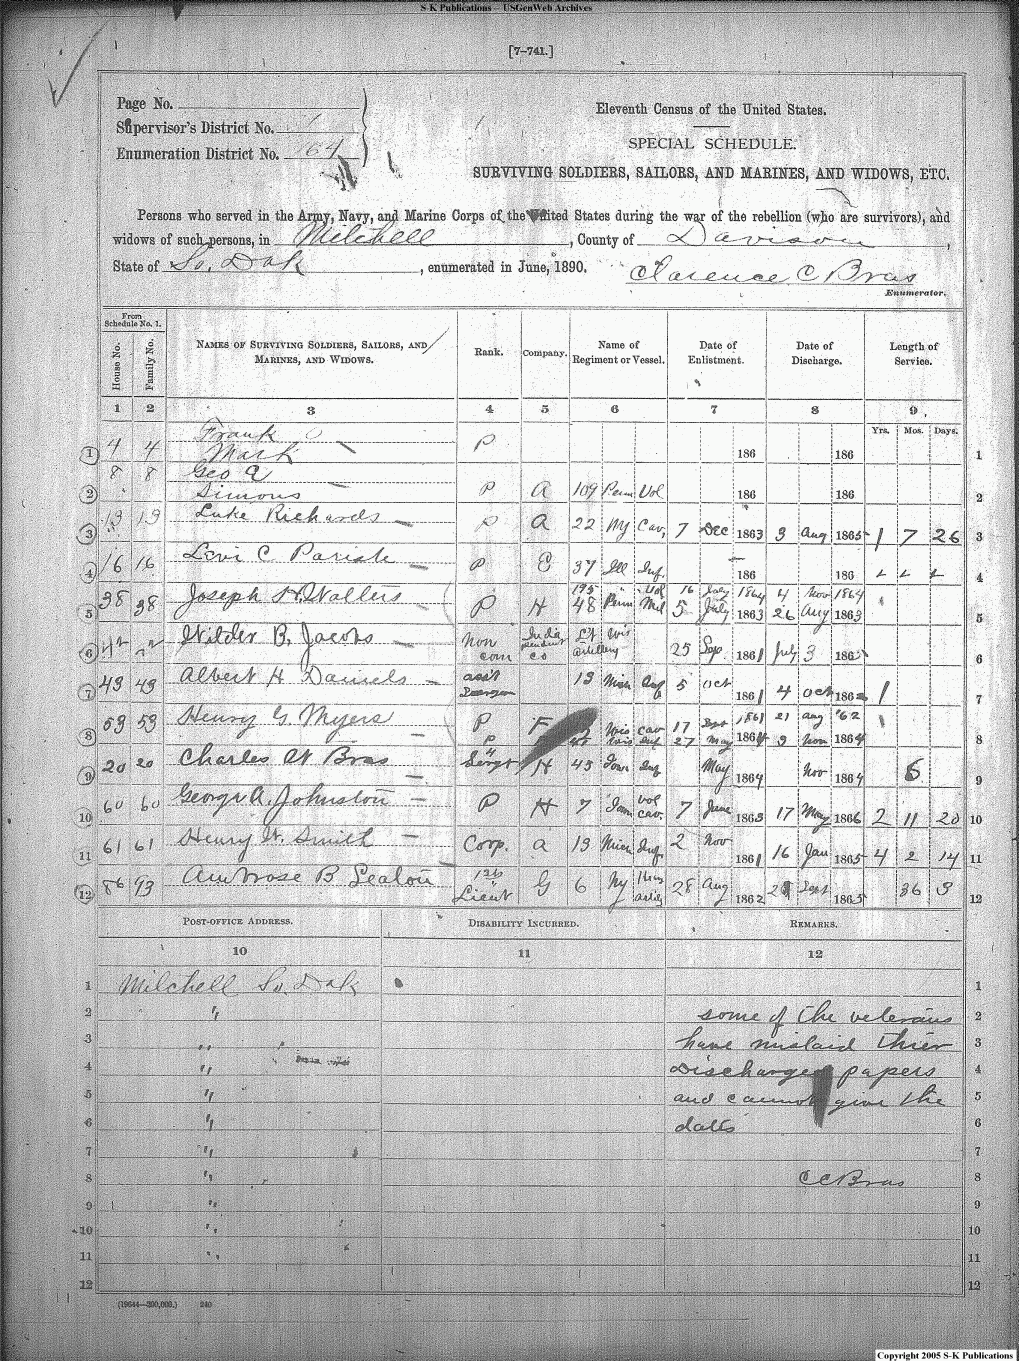 S-K Publications – USGenWeb Archives
[7–741.]
Page No.
Supervisor's District No. 1
Enumeration District No. 164
Eleventh Census of the United States.
SPECIAL SCHEDULE.
SURVIVING SOLDIERS, SAILORS, AND MARINES, AND WIDOWS, ETC.
Persons who served in the Army, Navy, and Marine Corps of the United States during the war of the rebellion (who are survivors), and
widows of such persons, in Mitchell, County of Davison,
State of So. Dak, enumerated in June, 1890. Clarence C Bras
Enumerator.
From Schedule No. 1.
House No. Family No. NAMES OF SURVIVING SOLDIERS, SAILORS, AND MARINES, AND WIDOWS. Rank. Company. Name of Regiment or Vessel. Date of Enlistment. Date of Discharge. Length of Service.
1 2 3 4 5 6 7 8 9
Yrs. Mos. Days.
1 4 4 Frank Mark P 186 186 1
2 8 8 Geo Simons P A 109 Penn Vol 186 186 2
3 13 13 Luke Richards P A 22 Ny Cav, 7 Dec 1863 3 Aug 1865 1 7 26 3
4 16 16 Levi C Parish P E 37 Ill Inf. 186 186 4
195 " Vol 16 July 1864 4 Nov 1864
5 38 38 Joseph H Walters P H 48 Penn Mil 5 July 1863 26 Aug 1863 5
6 42 Wilder B. Jacobs non com Independent co Lt Wis artillery 25 Sep 1861 July 3 1865 6
7 43 43 Albert H Daniels ass't Surgeon 13 Mich Inf 5 Oct 1861 4 Oct 186 1 7
8 53 53 Henry G. Myers P F Wis cav 17 Sept 1861 21 aug '62
P Wis Inf 27 May 1864 3 Nov 1864 8
9 20 20 Charles W Bras Sergt H 45 Iowa Inf May 1864 Nov 1864 6 9
10 60 60 George A. Johnston P H 7 Iowa vol cav. 7 June 1863 17 May 1866 2 11 20 10
11 61 61 Henry W. Smith Corp. a 13 Mich Inf. 2 Nov 1861 16 Jan 1865 4 2 14 11
12 86 93 Ambrose B Sealon 1st Lieut G 6 Ny Hvy artily 28 Aug 1862 Sept 1865 36 3 12
POST-OFFICE ADDRESS. DISABILITY INCURRED. REMARKS.
10 11 12
1 Mitchell So. Dak 1
2 " some of the veterans 2
3 " have mislaid thier 3
4 " Discharge papers 4
5 " and cannot give the 5
6 " dates 6
7 " 7
8 " C C Bras 8
9 " 9
10 " 10
11 " 11
12 12
(19644—300,000.) 240
Copyright 2005 S-K Publications